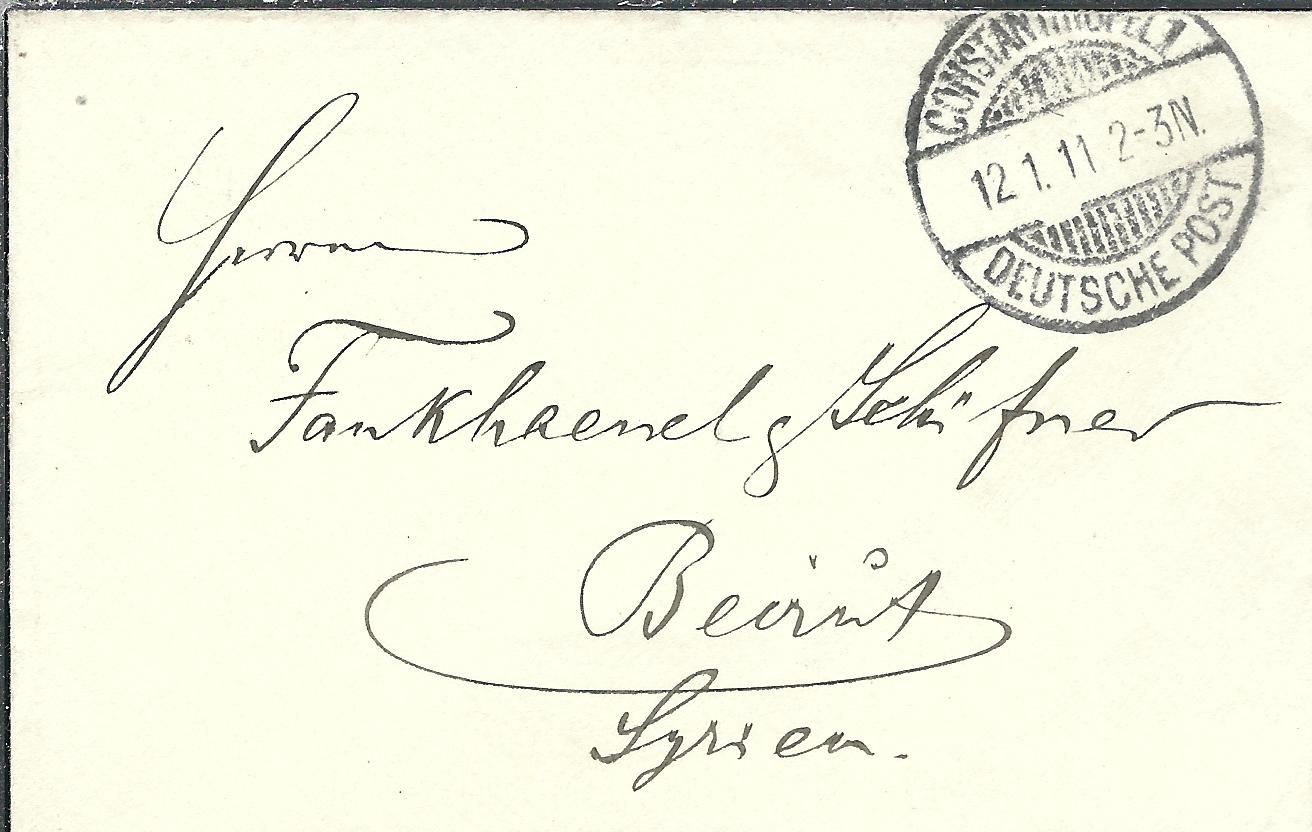 CONSTANTINOPEL 1
12 1. 11 2-3N.
DEUTSCHE POST
Herren
Fankhaenel & Schifner
Beirut
Syrien.